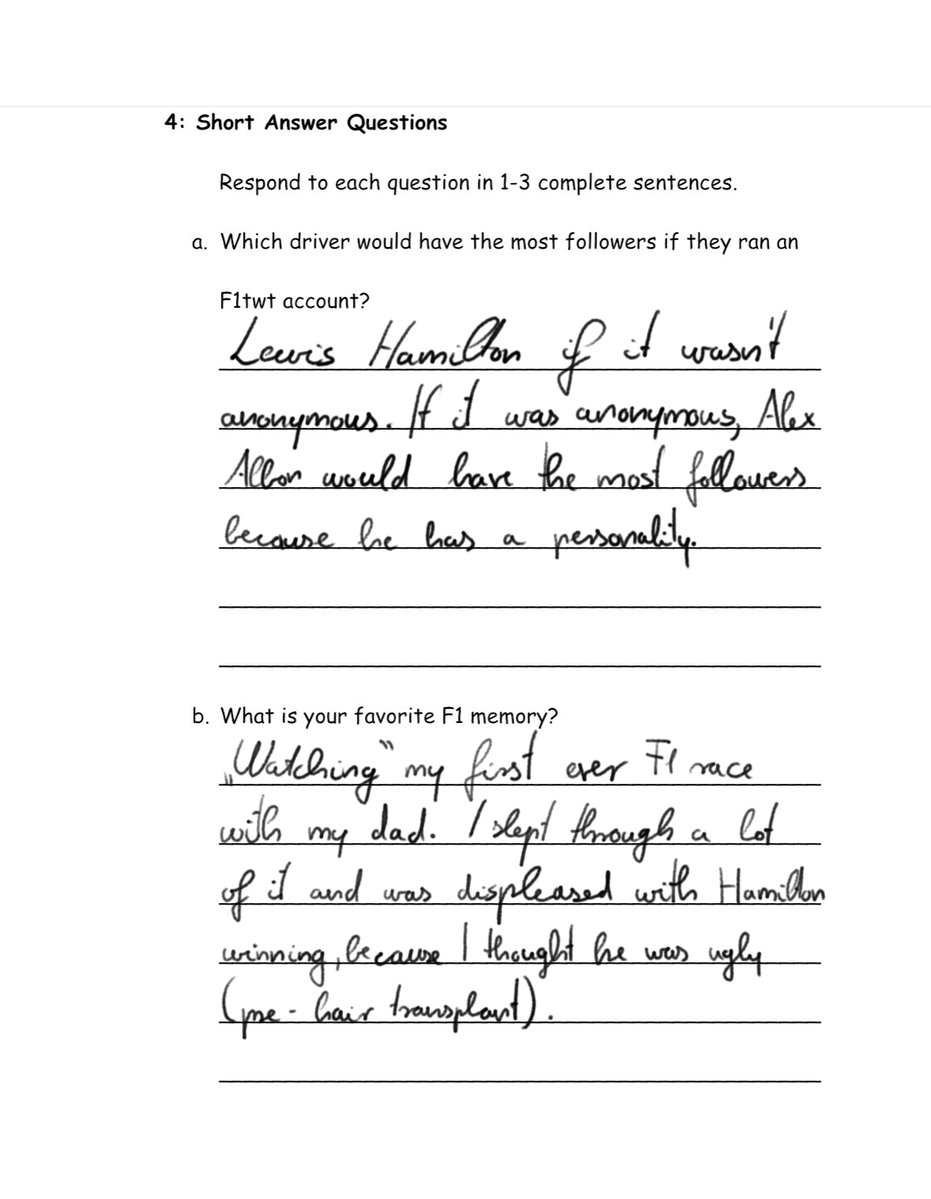 4: Short Answer Questions
Respond to each question in 1-3 complete sentences.
a. Which driver would have the most followers if they ran an
F1twt account?
Lewis Hamilton if it wasn't
anonymous. If it was anonymous, Alex
Allbon would have the most followers
because he has a personality.
b. What is your favorite F1 memory?
„Watching“ my first ever F1 race
with my dad. I slept through a lot
of it and was displeased with Hamilton
winning, because I thought he was ugly
(pre-hair transplant).